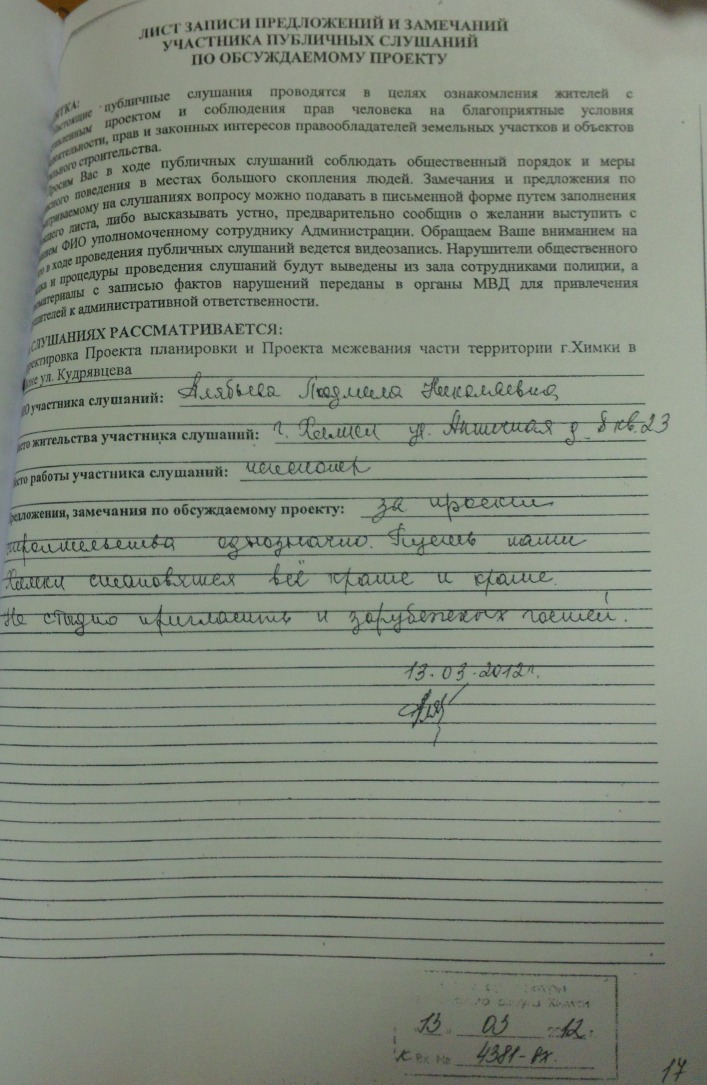 ЛИСТ ЗАПИСИ ПРЕДЛОЖЕНИЙ И ЗАМЕЧАНИЙ
УЧАСТНИКА ПУБЛИЧНЫХ СЛУШАНИЙ
ПО ОБСУЖДАЕМОМУ ПРОЕКТУ
публичные слушания проводятся в целях ознакомления жителей с
проектом и соблюдения прав человека на благоприятные условия
прав и законных интересов правообладателей земельных участков и объектов
строительства.
Просим Вас в ходе публичных слушаний соблюдать общественный порядок и меры
поведения в местах большого скопления людей. Замечания и предложения по
на слушаниях вопросу можно подавать в письменной форме путем заполнения
листа, либо высказывать устно, предварительно сообщив о желании выступить с
ФИО уполномоченному сотруднику Администрации. Обращаем Ваше вниманием на
в ходе проведения публичных слушаний ведется видеозапись. Нарушители общественного
и процедуры проведения слушаний будут выведены из зала сотрудниками полиции, а
материалы с записью фактов нарушений переданы в органы МВД для привлечения
к административной ответственности.
СЛУШАНИЯХ РАССМАТРИВАЕТСЯ:
Проекта планировки и Проекта межевания части территории г.Химки в
ул. Кудрявцева
участника слушаний: Алябьева Людмила Николаевна
жительства участника слушаний: г. Химки ул. д. 8 кв. 23
работы участника слушаний: пенсионер
Предложения, замечания по обсуждаемому проекту: за проект
строительства однозначно. Пусть наши
Химки становятся всё краше и краше.
Не стыдно пригласить и зарубежных гостей.
13.03.2012г.
Химки
13 03 12 г.
Вх № 4381-вх.
17